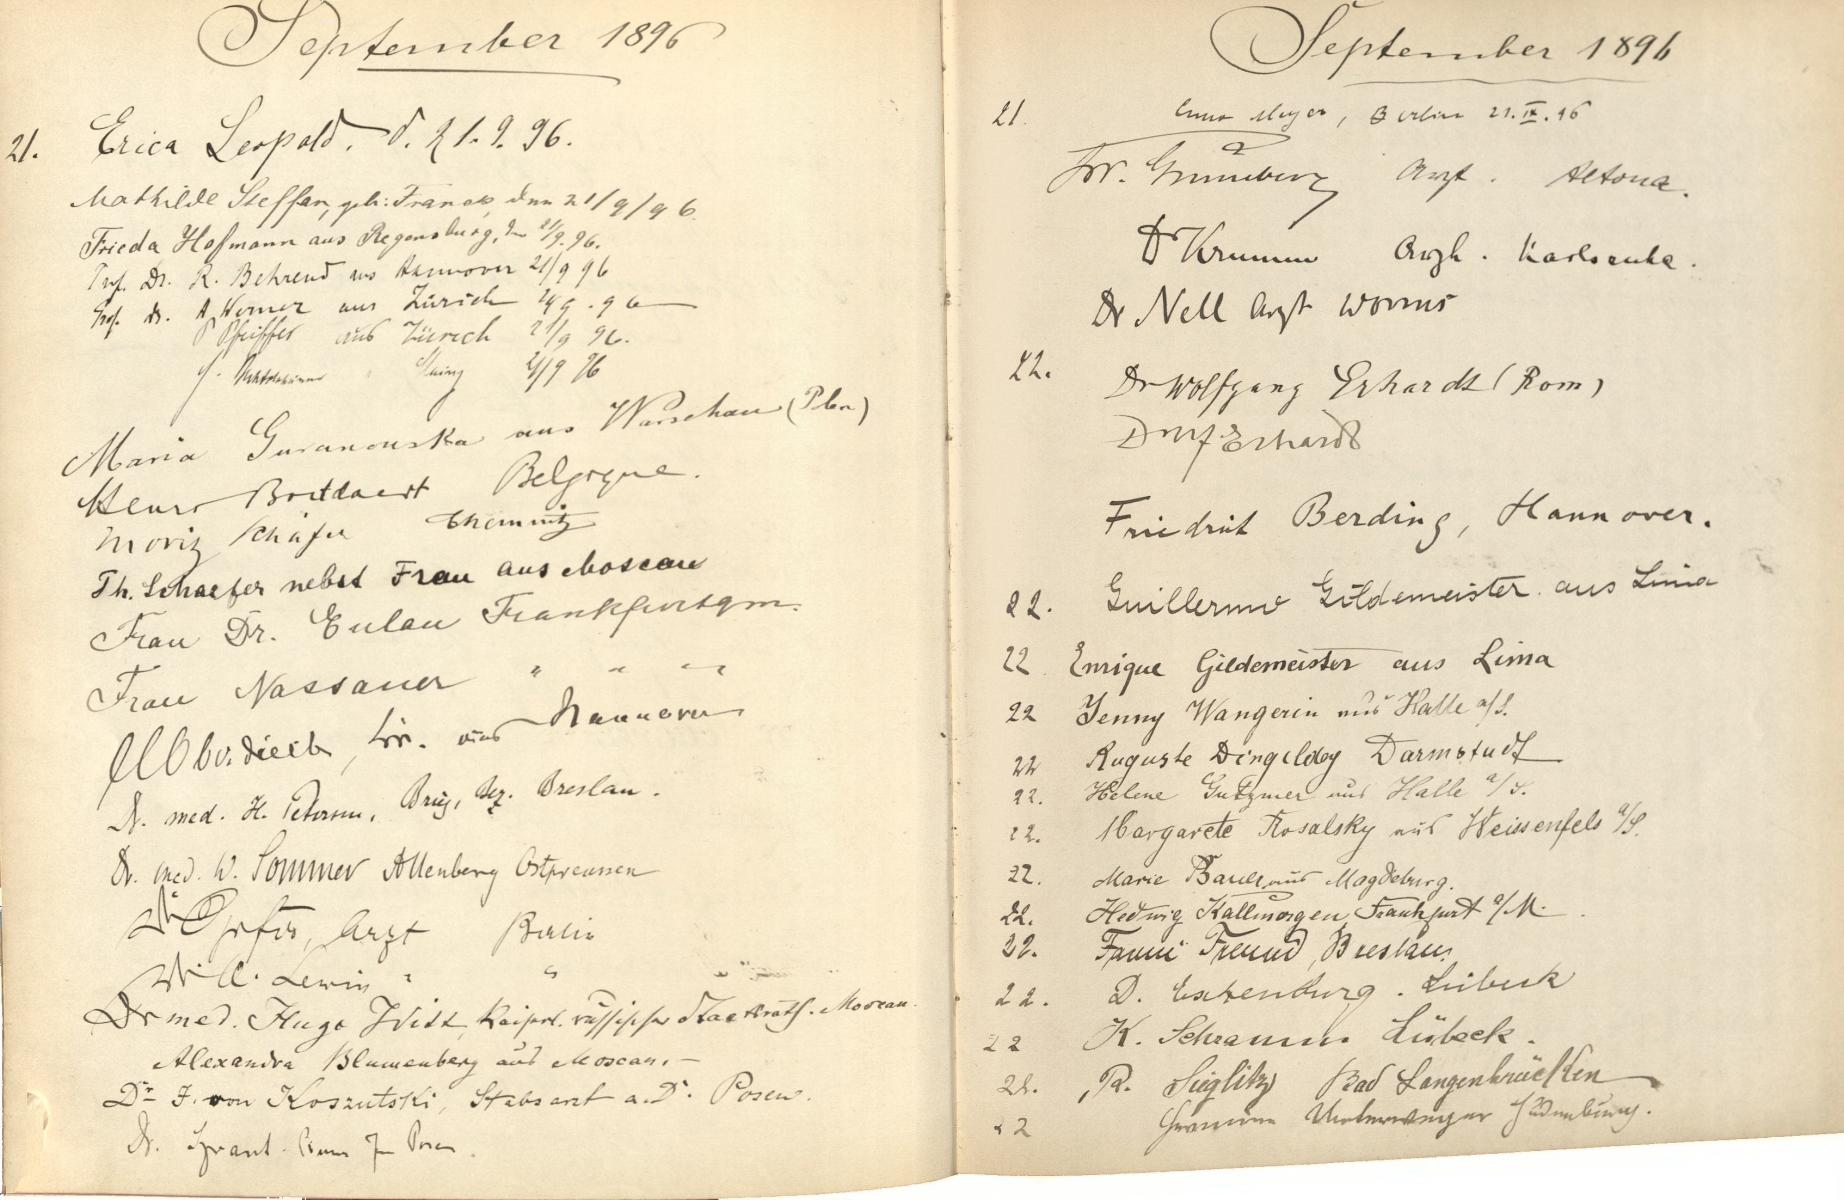 September 1896
21. Erica Leopold. d. 21.9.96.
Mathilde Steffan, geb: Franck, den 21/9/96.
Frieda Hofmann aus Regensburg, den 21/9.96.
Prof. Dr. R. Behrend aus Hannover 21/9 96
Prof. Dr. A Werner aus Zürich 21/9.96
P Pfeiffer aus Zürich 21/9 96.
21/9 96
Maria aus Warschau (Polen)
Henri Belgique.
Moriz Schäfer Chemnitz
Th. Schaefer nebst Frau aus Moscau
Frau Dr. Eulau Frankfurt a/m.
Frau Nassauer " " "
Dr. aus Hannover
Dr. med. H. Petersen, Brieg, Bez. Breslau.
Dr. med. W. Sommer Allenberg Ostpreussen
Dr Arzt Berlin
Dr A. Lewin " "
Dr med. Hugo Kaiserl. russischer Staatsrath. Moscau.
Alexandra Blumenberg aus Moscau. –
Dr. F. von Koszutski, Stabsarzt a.D. Posen.
Dr. Posen
September 1896
21. Meyer, Berlin 21.IX.96
Dr. Grüneberg Arzt. Altona.
Dr Krumm Arzt. Karlsruhe.
Dr Nell Arzt Worms
22. Dr Wolfgang Erhardt (Rom)
Erhardt
Friedrich Berding, Hannover.
22. Guillermo Gildemeister aus Lima
22 Enrique Gildemeister aus Lima
22 Jenny Wangerin aus Halle a/S.
22 Auguste Dingeldey Darmstadt
22. Helene Gutzmer aus Halle a/S.
22. Margarete Rosalsky aus Weissenfels a/S.
22. Marie Bauer aus Magdeburg.
22. Hedwig Kallmorgen, Frankfurt a/M.
22. Fanni Freund, Breslau.
22. D. Eschenburg. Lübeck
22 K. Schramm Lübeck.
22. R. Sieglitz Bad Langenbrücken
22